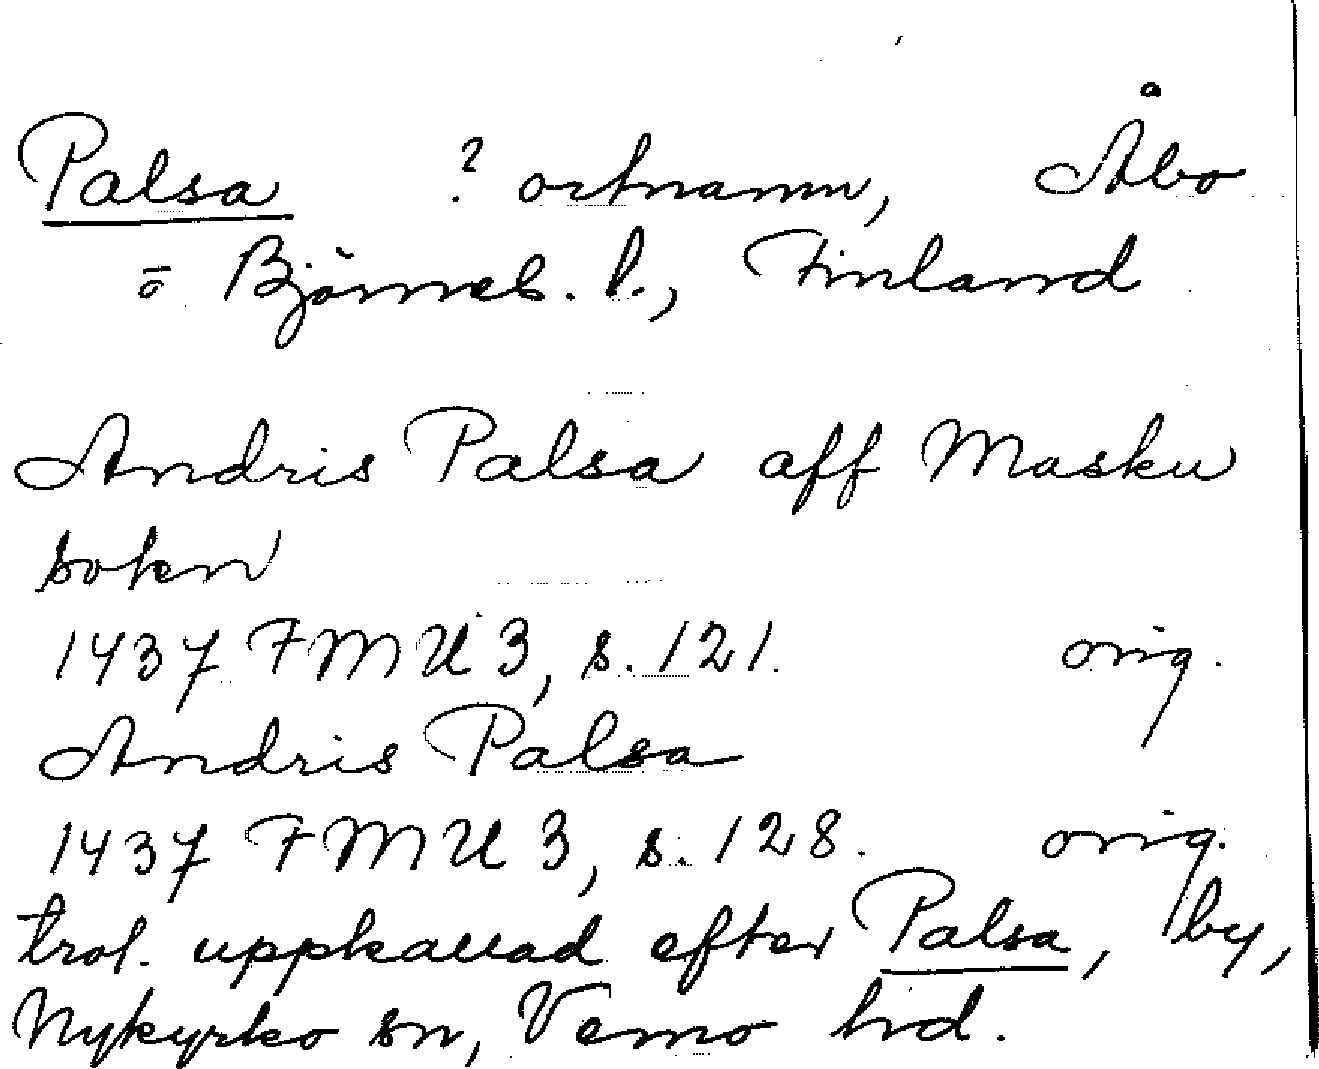 Palsa ? ortnamn, Åbo
o Björneb. l., Finland
Andris Palsa aff Masku
sokn
1437 FMU 3, s. 121. orig.
Andris Palsa
1437 FMU 3, s. 128. orig.
trol. uppkallad efter Palsa, by,
Nykyrko sn, Vemo hd.